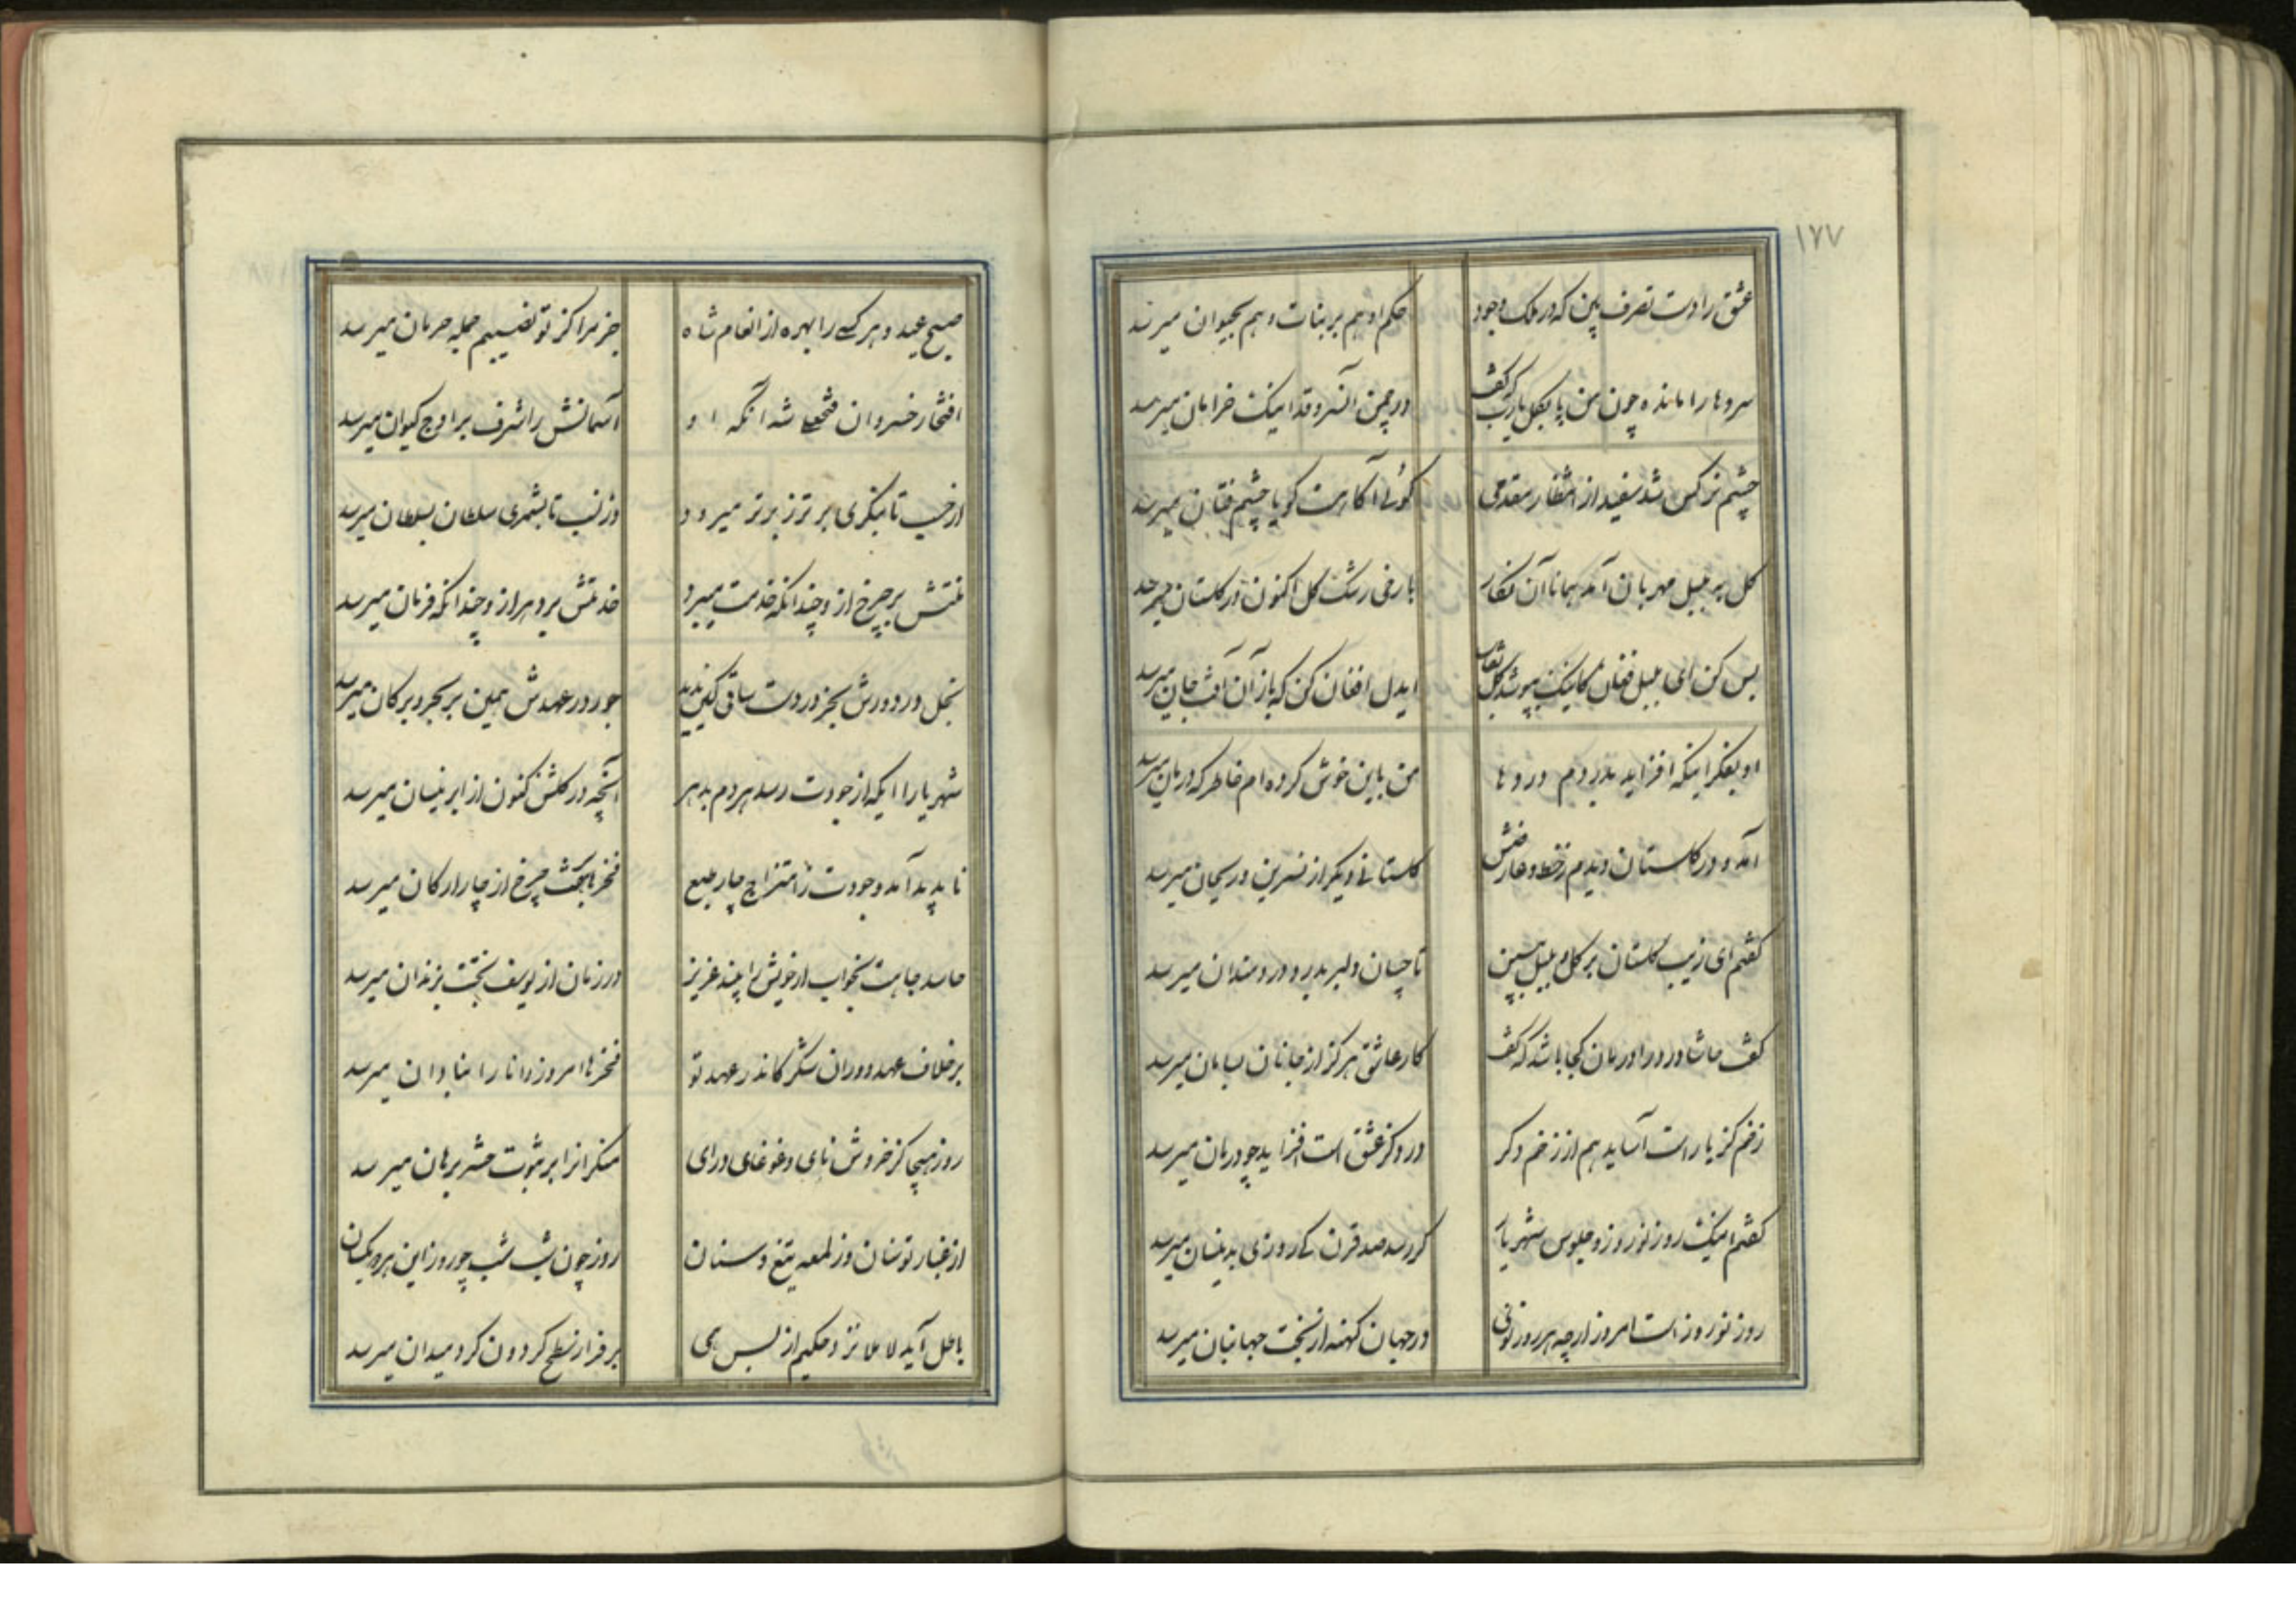 ۱۷۷
عشق را دست تصرف بین که در ملک وجود
حکم او هم بر بنات و هم بحیوان میرسد
سروها را مانده چون من پا بگل یارب که گفت
در چمن آنسرو قد اینک خرامان میرسد
چشم نرکس شد سفید از انتظار مقدمی
کوئی آنکارست کویا چشم فتان میرسد
کل بر بلبل مهربان آمد همانا آن نگار
با رخی رشک کل اکنون در کلستان میرسد
بس کن ای بلبل فغان کاینک بپوشد کل نقاب
ایدل افغان کن که باز آن آفت جان میرسد
او بفکر اینکه افزاید بدردم دردها
من باین خوش کرده ام خاطر که درمان میرسد
آمد و در کلستان دیدم ز خط و عارضش
کلستانی دیکر از نسرین و ریحان میرسد
کفتم ای زیب کلستان بر کل و بلبل ببین
تا چسان دلبر بدرد دردمندان میرسد
کفت حاشا درد را درمان کجا باشد که گفت
کار عاشق هرکز از جانان بسامان میرسد
زخم کز یار است آساید هم از زخم دکر
درد کز عشق است افزاید چو درمان میرسد
کفتم اینک روز نوروز و جلوس شهریار
کر رسد صد قرن کی روزی بدینسان میرسد
روز نوروز است امروز ارچه هر روز نوی
در جهان کهنه از بخت جهانبان میرسد
صبح عید و هر کسی را بهره از انعام شاه
جز مرا کز تو نصیبم جمله حرمان میرسد
افتخار خسروان فتحعلی شه آنکه او
آسمانش را شرف بر اوج کیوان میرسد
از حسب تا بنکری برتر ز برتر میرود
وز نسب تا بشمری سلطان بسلطان میرسد
منتش بر چرخ از و چندانکه خدمت میبرد
خدمتش بر دهر از و چندانکه فرمان میرسد
بخل در دورش بجز در دست ساقی کس ندید
جور در عهدش همین بر بحر و بر کان میرسد
شهریارا ایکه از جودت رسد هر دم بدهر
آنچه در کلشن کنون از ابر نیسان میرسد
تا پدید آمد وجودت ز امتزاج چار طبع
فخرها بر چرخ از چار ارکان میرسد
حاسد جاهت بخواب ار خویش را بیند عزیز
در زمان از یوسف بختت بزندان میرسد
بر خلاف عهد دوران شکر کاندر عهد تو
فخرها امروز دانا را بنادان میرسد
روز هیجا کز خروش نای و غوغای درای
منکرانرا بر ثبوت حشر برهان میرسد
از غبار توسنان وز لمعه تیغ و سنان
روز چون شب شب چو روز این هر دو یکسان میرسد
باطل آید لا خلا نزد حکیم از بس همی
بر فراز سطح کردون کرد میدان میرسد